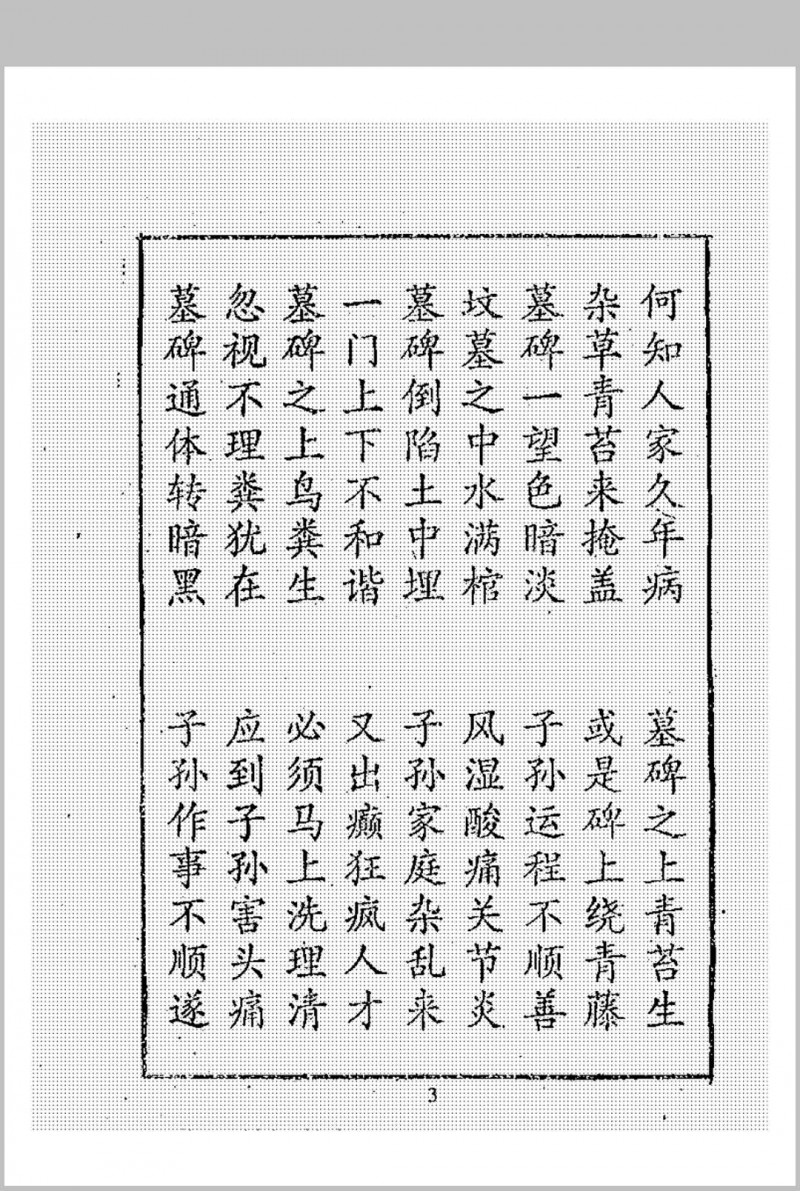 何知人家久年病　墓碑之上青苔生
杂草青苔来掩盖　或是碑上绕青藤
墓碑一望色暗淡　子孙运程不顺善
坟墓之中水满棺　风湿酸痛关节炎
墓碑倒陷土中埋　子孙家庭杂乱来
一门上下不和谐　又出癫狂疯人才
墓碑之上鸟粪生　必须马上洗理清
忽视不理粪犹在　应到子孙害头痛
墓碑通体转暗黑　子孙作事不顺遂
3